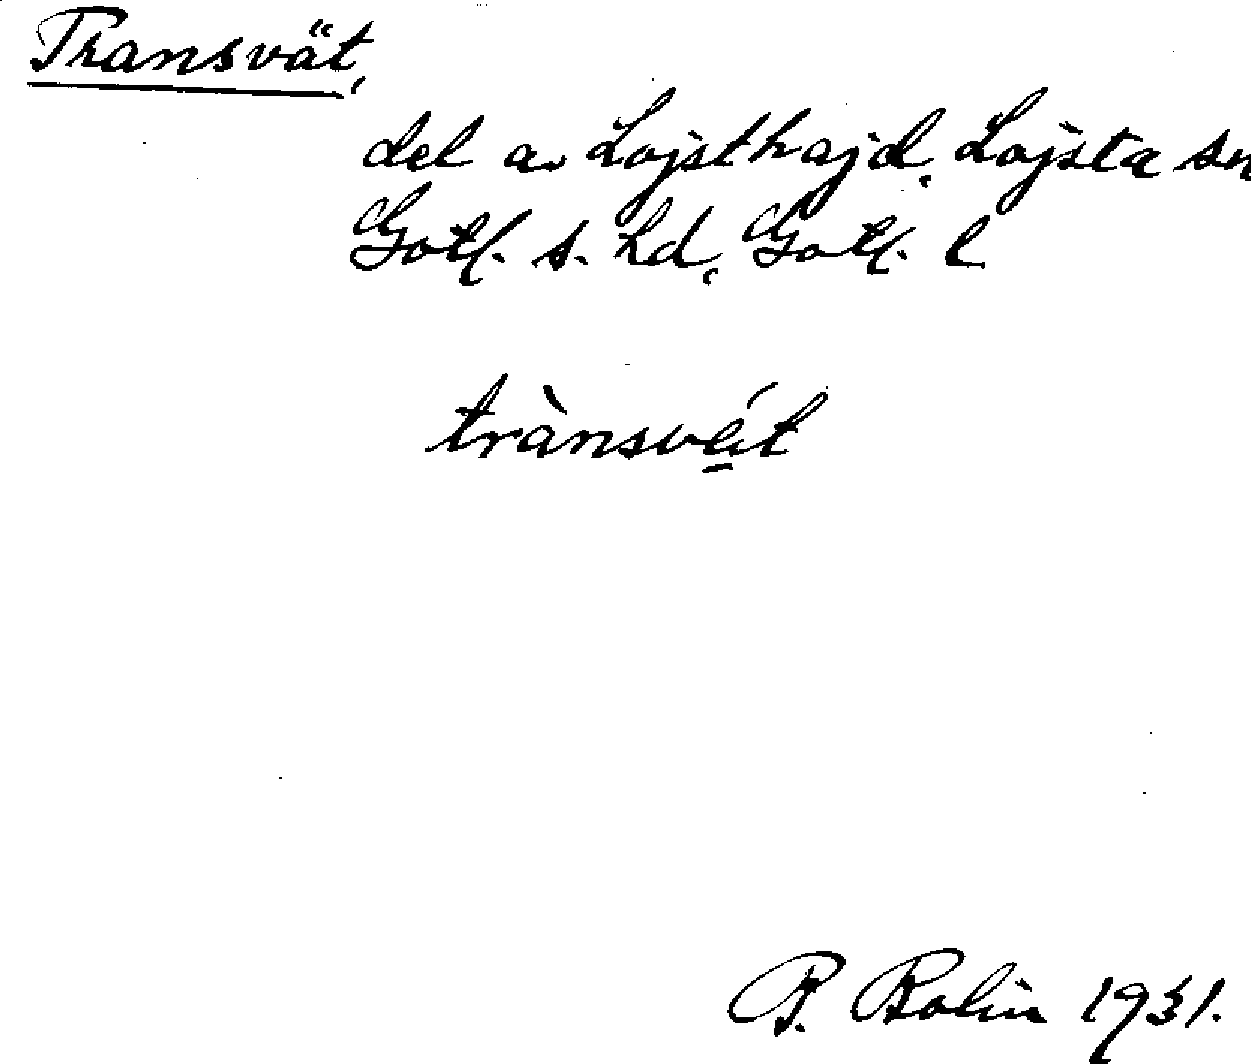 Transvät,
del av Lojsthajd, Lojsta sn
Gotl. s. hd, Gotl. l.
trànsvét
P. Bolin 1931.